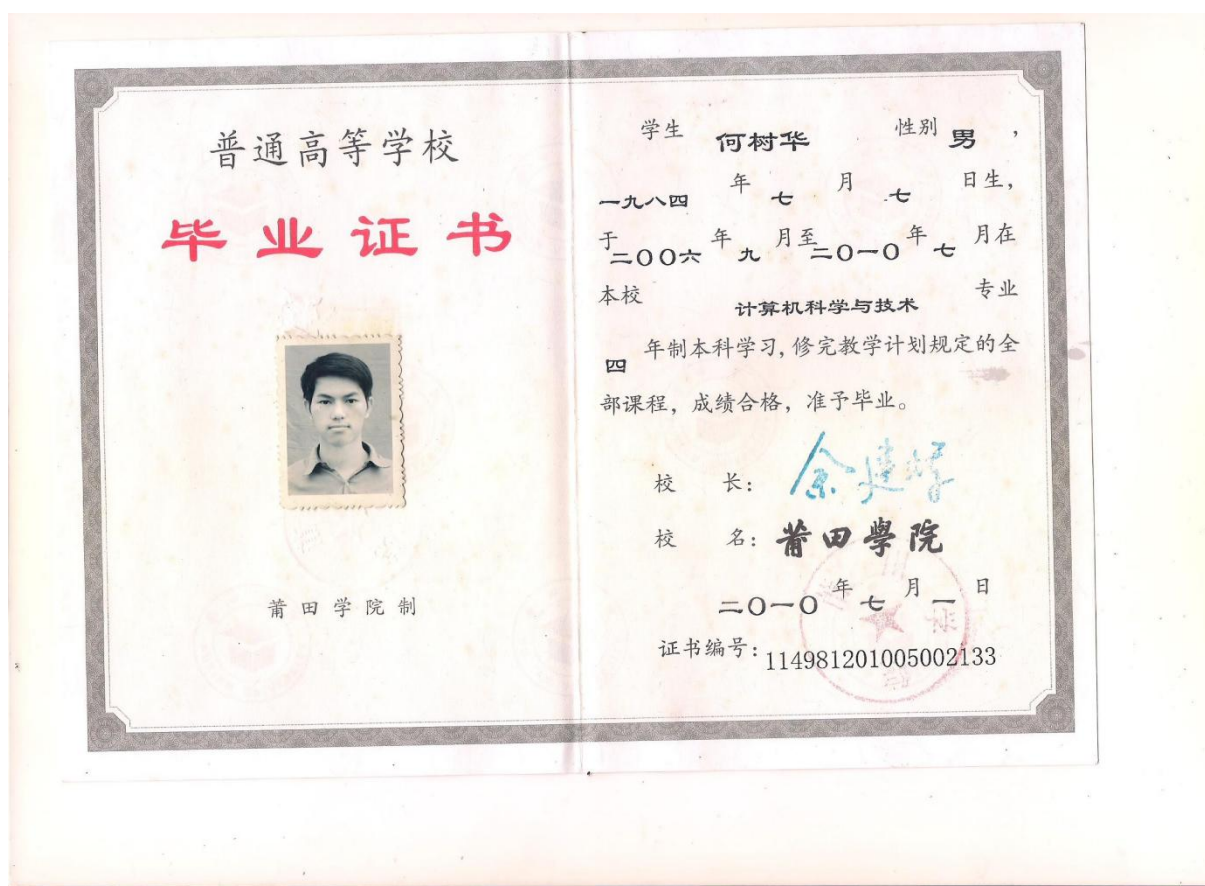 普通高等学校
毕业证书
莆田学院制
学生 何树华 性别 男,
一九八四 年 七 月 七 日生,
于二〇〇六 年 九 月至二〇一〇 年 七 月在
本校 计算机科学与技术 专业
四 年制本科学习,修完教学计划规定的全
部课程,成绩合格,准予毕业。
校 长:
校 名:莆田學院
二〇一〇 年 七 月 一 日
证书编号:114981201005002133